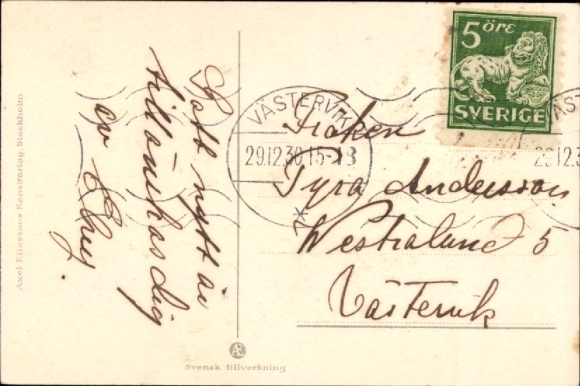 Gott nytt år
tillönskas dig
av Elsy.
5 ÖRE
SVERIGE
VÄSTERVIK
29.12.30.15-18
Fröken
Tyra Andersson
Westralund 5
Västervik
Axel Eliassons Konstförlag, Stockholm
Æ
Svensk tillverkning